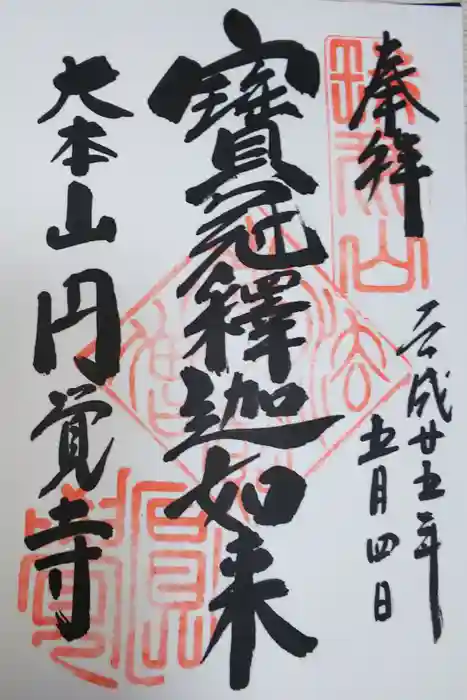 奉拝
平成廿五年
五月四日
寶冠釋迦如来
大本山円覚寺